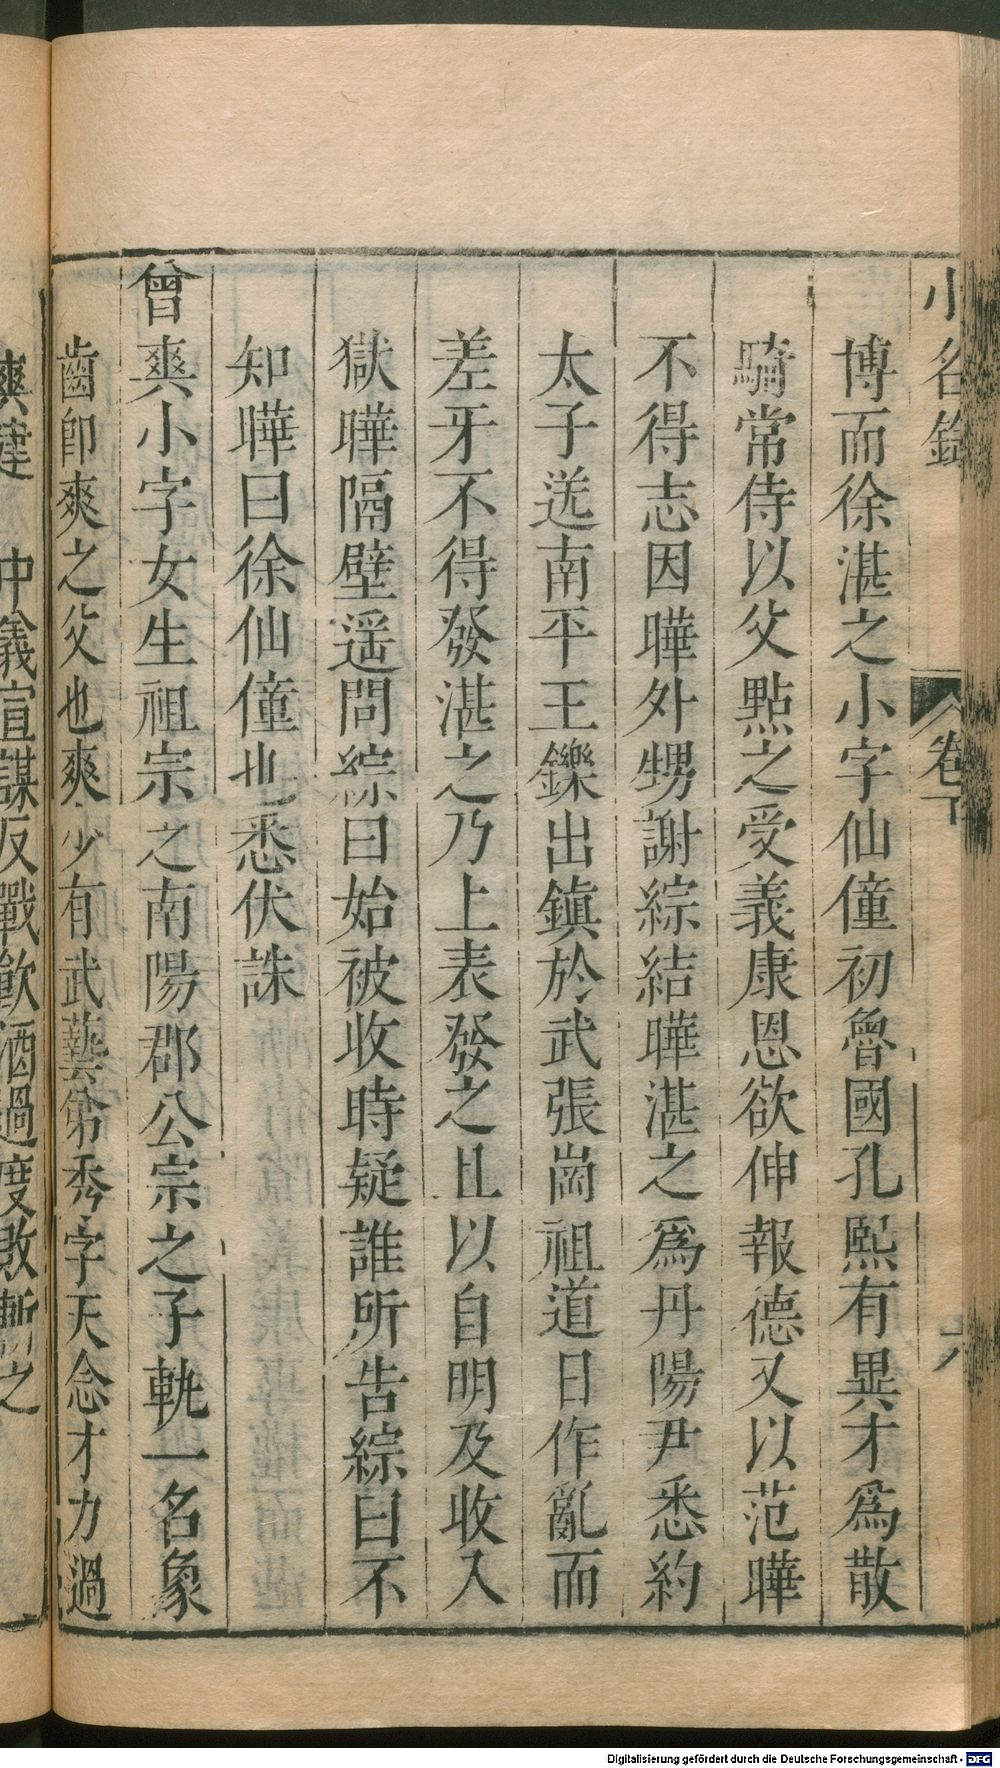 小名錄 卷下 六
博而徐湛之小字仙僮初魯國孔熙有異才爲散
騎常侍以父點之受義康恩欲伸報德又以范曄
不得志因曄外甥謝綜結曄湛之爲丹陽尹悉約
太子送南平王鑠出鎮於武張崗祖道日作亂而
差牙不得發湛之乃上表發之且以自明及收入
獄曄隔壁遥問綜曰始被收時疑誰所告綜曰不
知曄曰徐仙僮也悉伏誅
曾爽小字女生祖宗之南陽郡公宗之子軌一名象
齒卽爽之父也爽少有武藝弟秀字天念才力過
爽 中義宣謀反戰飲酒過度敗斬之
Digitalisierung gefördert durch die Deutsche Forschungsgemeinschaft - DFG